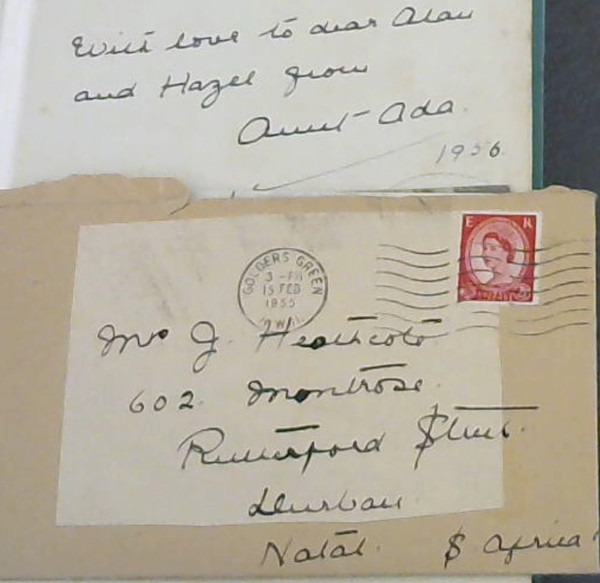 With love to dear Alan
and Hazel from
Aunt Ada.
1956.
E R
GOLDERS GREEN
3 - PM
15 FEB
1955
N.W.11.
Mrs J. Heathcote
602. Montrose.
Rutherford Street.
Durban
Natal. S Africa